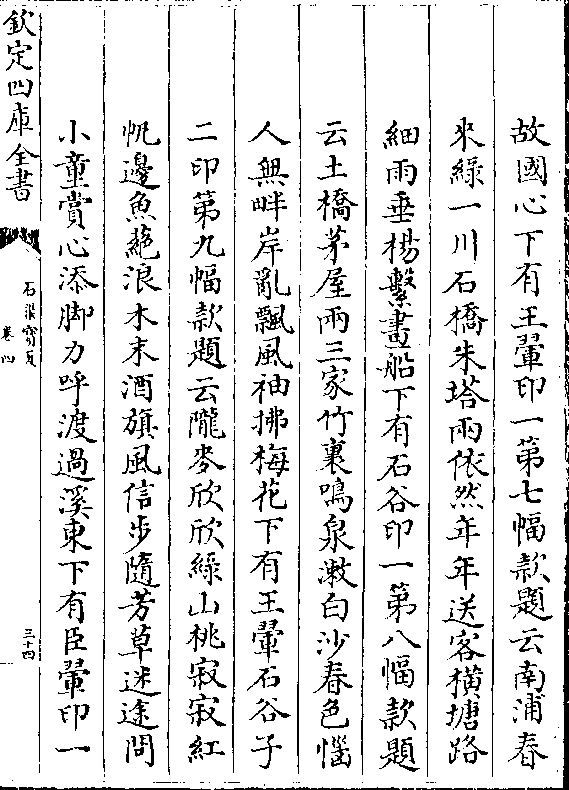 故國心下有王翬印一第七幅款題云南浦春
來綠一川石橋朱塔兩依然年年送客橫塘路
細雨垂楊繫畫船下有石谷印一第八幅款題
云土橋茅屋兩三家竹裏鳴泉漱白沙春色惱
人無畔岸亂飄風袖拂梅花下有王翬石谷子
二印第九幅款題云隴麥欣欣綠山桃寂寂紅
帆邊魚䓤浪木末酒旗風信步隨芳草迷途問
小童賞心添脚力呼渡過溪東下有臣翬印一
欽定四庫全書
石渠寶笈
卷四
三十四